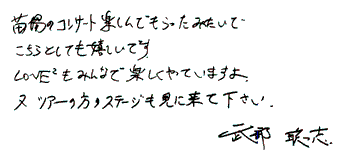 苗場のコンサート楽しんでもらったみたいで
こちらとしても嬉しいです
LOVE²もみんなで楽しくやっていますよ
又ツアーの方のステージも見に来て下さい.
武部 聡志